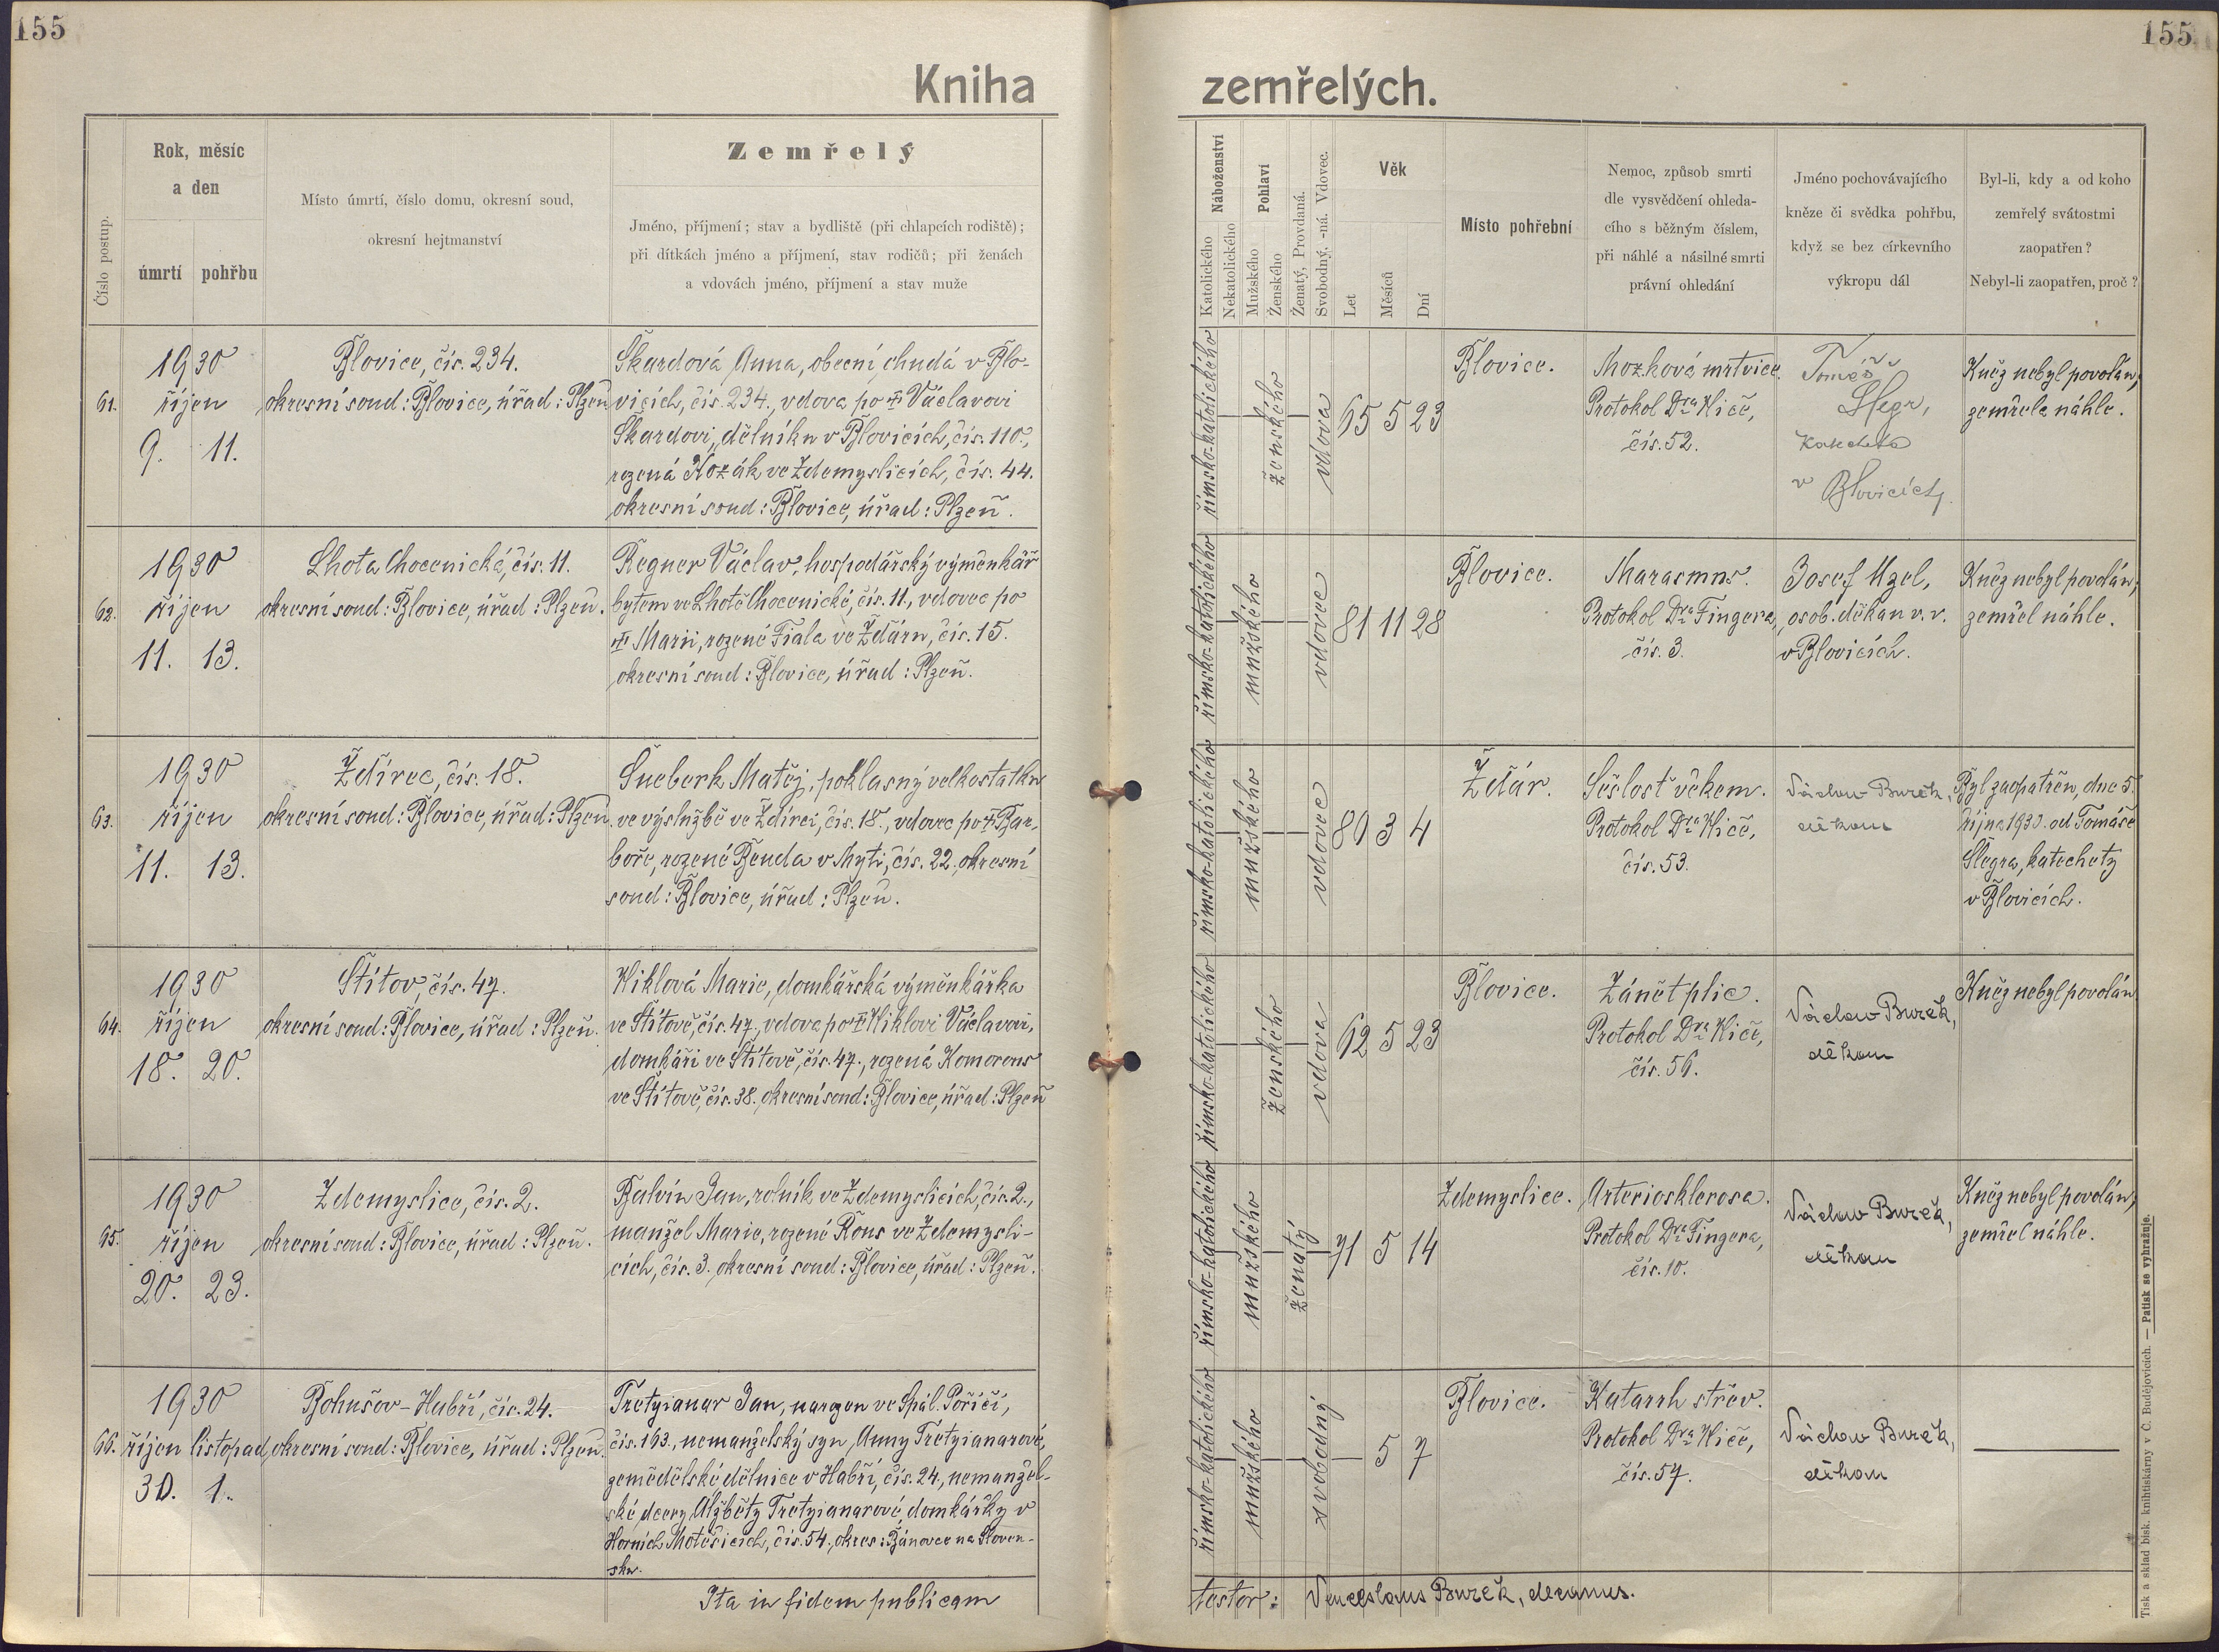 155
155
Kniha
zemřelých.
Číslo postup.
Rok, měsíc
a den
úmrtí
pohřbu
Místo úmrtí, číslo domu, okresní soud,
okresní hejtmanství
Zemřelý
Jméno, příjmení; stav a bydliště (při chlapcích rodiště);
při dítkách jméno a příjmení, stav rodičů; při ženách
a vdovách jméno, příjmení a stav muže
Náboženství
Katolického
Nekatolického
Pohlaví
Mužského
Ženského
Ženatý, Provdaná.
Svobodný, -ná. Vdovec.
Věk
Let
Měsíců
Dní
Místo pohřební
Nemoc, způsob smrti
dle vysvědčení ohleda-
cího s běžným číslem,
při náhlé a násilné smrti
právní ohledání
Jméno pochovávajícího
kněze či svědka pohřbu,
když se bez církevního
výkropu dál
Byl-li, kdy a od koho
zemřelý svátostmi
zaopatřen?
Nebyl-li zaopatřen, proč?
61.
1930
říjen
9. 11.
Blovice, čís. 234.
okresní soud: Blovice, úřad: Plzeň
Škardová Anna, obecní chudá v Blo-
vicích, čís. 234., vdova po † Václavovi
Škardovi, dělníku v Blovicích, čís. 110.,
rozená Kozák ve Zdemyslicích, čís. 44.
okresní soud: Blovice, úřad: Plzeň.
římsko-katolického
ženského
vdova
65 5 23
Blovice.
Mozková mrtvice.
Protokol Dra Kiče,
čís. 52.
Tomáš
Šlegr,
katecheta
v Blovicích.
Kněz nebyl povolán,
zemřela náhle.
62.
1930
říjen
11. 13.
Lhota Chocenická, čís. 11.
okresní soud: Blovice, úřad: Plzeň.
Regner Václav, hospodářský výměnkář
bytem ve Lhotě Chocenické, čís. 11., vdovec po
† Marii, rozené Fiala ve Žďáru, čís. 15.
okresní soud: Blovice, úřad: Plzeň.
římsko-katolického
mužského
vdovec
81 11 28
Blovice.
Marasmus.
Protokol Dra Fingera,
čís. 3.
Josef Uzel,
osob. děkan v. v.
v Blovicích.
Kněz nebyl povolán,
zemřel náhle.
63.
1930
říjen
11. 13.
Ždírec, čís. 18.
okresní soud: Blovice, úřad: Plzeň.
Šneberk Matěj, poklasný velkostatku
ve výslužbě ve Ždírci, čís. 18., vdovec po † Bar-
boře, rozené Benda v Mýti, čís. 22, okresní
soud: Blovice, úřad: Plzeň.
římsko-katolického
mužského
vdovec
80 3 4
Ždár.
Sešlost věkem.
Protokol Dra Kiče,
čís. 53.
Václav Bureš,
děkan
Byl zaopatřen, dne 5.
října 1930. od Tomáše
Šlegra, katechety
v Blovicích.
64.
1930
říjen
18. 20.
Štítov, čís. 47.
okresní soud: Blovice, úřad: Plzeň.
Kiklová Marie, domkářská výměnkářka
ve Štítově, čís. 47., vdova po † Kiklovi Václavovi,
domkáři ve Štítově, čís. 47., rozená Komorous
ve Štítově, čís. 38. okresní soud: Blovice, úřad: Plzeň
římsko-katolického
ženského
vdova
62 5 23
Blovice.
Zánět plic.
Protokol Dra Kiče,
čís. 56.
Václav Bureš,
děkan
Kněz nebyl povolán
65.
1930
říjen
20. 23.
Zdemyslice, čís. 2.
okresní soud: Blovice, úřad: Plzeň.
Balvín Jan, rolník ve Zdemyslicích, čís. 2.,
manžel Marie, rozené Kous ve Zdemysli-
cích, čís. 3. okresní soud: Blovice, úřad: Plzeň.
římsko-katolického
mužského
ženatý
71 5 14
Zdemyslice.
Arteriosklerosa.
Protokol Dra Fingera,
čís. 10.
Václav Bureš,
děkan
Kněz nebyl povolán,
zemřel náhle.
66.
1930
říjen listopad
30. 1.
Bohušov-Hubří, čís. 24.
okresní soud: Blovice, úřad: Plzeň.
Tretyianar Jan, narozen ve Spál. Poříčí,
čís. 163., nemanželský syn Anny Tretyianarové,
zemědělské dělnice v Habří, čís. 24, nemanžel-
ské dcery Alžběty Tretyianarové, domkářky v
Horních Motěšicích, čís. 54., okres: Bánovce na Sloven-
sku.
římsko-katolického
mužského
svobodný
— 5 7
Blovice.
Katarrh střev.
Protokol Dra Kiče,
čís. 57.
Václav Bureš,
děkan
Ita in fidem publicam
testor: Venceslaus Bureš, decanus.
Tisk a sklad bisk. knihtiskárny v Č. Budějovicích. — Patisk se vyhražuje.